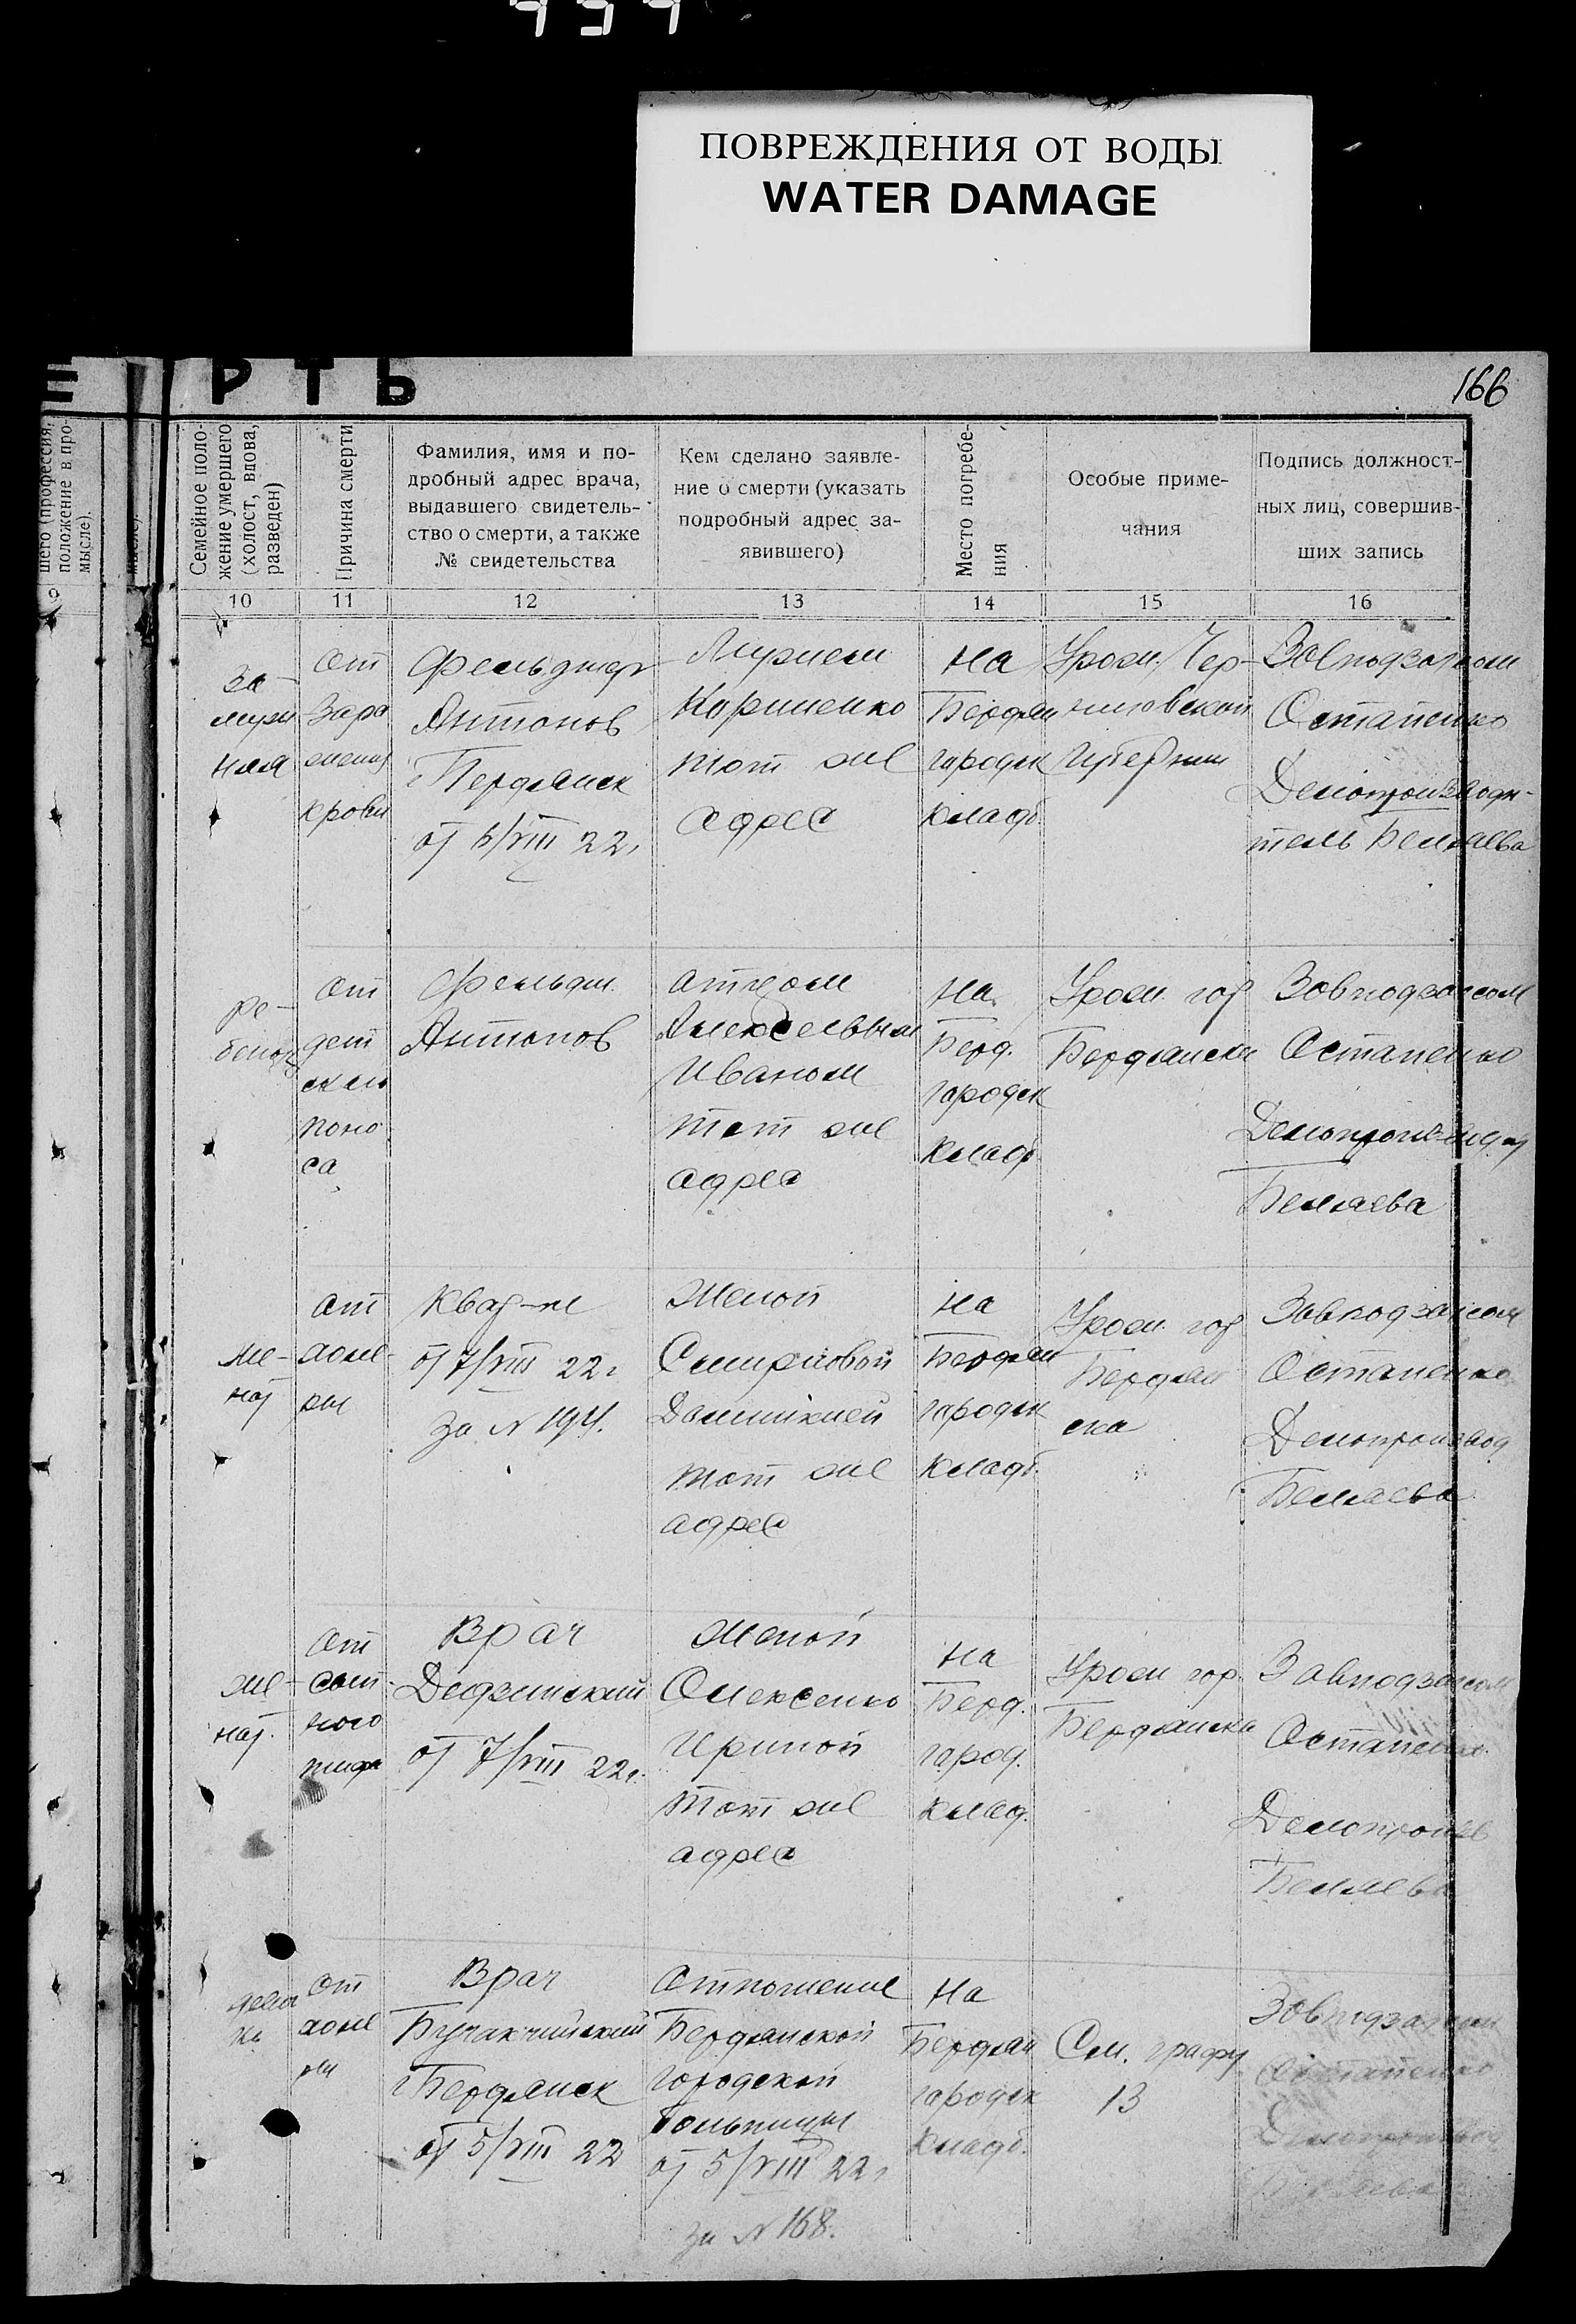 ПОВРЕЖДЕНИЯ ОТ ВОДЫ
WATER DAMAGE
РТЬ
166
шего (профессия,
положение в про-
мысле).
Семейное поло-
жение умершего
(холост, вдова,
разведен)
Причина смерти
Фамилия, имя и по-
дробный адрес врача,
выдавшего свидетель-
ство о смерти, а также
№ свидетельства
Кем сделано заявле-
ние о смерти (указать
подробный адрес за-
явившего)
Место погребе-
ния
Особые приме-
чания
Подпись должност-
ных лиц, совершив-
ших запись
9
10
11
12
13
14
15
16
За-
муж
няя
от
зара
жения
крови
Фельдшер
Антонов
г. Бердянск
от 6/VIII 22 г
Мужем
тот же
адрес
на
Бердян
городск
кладб.
Урож. Чер-
ниговской
губернии
Завподзагсом
Остапенко
Делопроизводи-
тель Беляева
ре-
бенок
от
дет
ского
поно
са
Фельдш.
Антонов
отцом
Иваном
тот же
адрес
на
Берд.
городск
кладб
Урож. гор
Бердянска
Завподзагсом
Остапенко
Делопроизвод
Беляева
же-
нат
от
холе-
ры
от 7/VIII 22 г
за N 194.
Женой
Смирновой
тот же
адрес
на
Бердян
городск
кладб.
Урож. гор
Бердян
ска
Завподзагсом
Остапенко
Делопроизвод
Беляева
же-
нат.
от
сып-
ного
тифа
Врач
от 7/VIII 22 г.
Женой
Олексенко
Ириной
тот же
адрес
на
Берд.
город.
клад.
Урож. гор.
Бердянска
Завподзагсом
Остапенко
Делопроизв
Беляева
от
холе
ры
Врач
г. Бердянск
от 5/VIII 22
Отношение
Бердянской
городской
больницы
от 5/VIII 22 г
за N 168.
на
Бердян
городск
кладб.
См. графу
13
Завподзагсом
Остапенко
Делопроизвод
Беляева